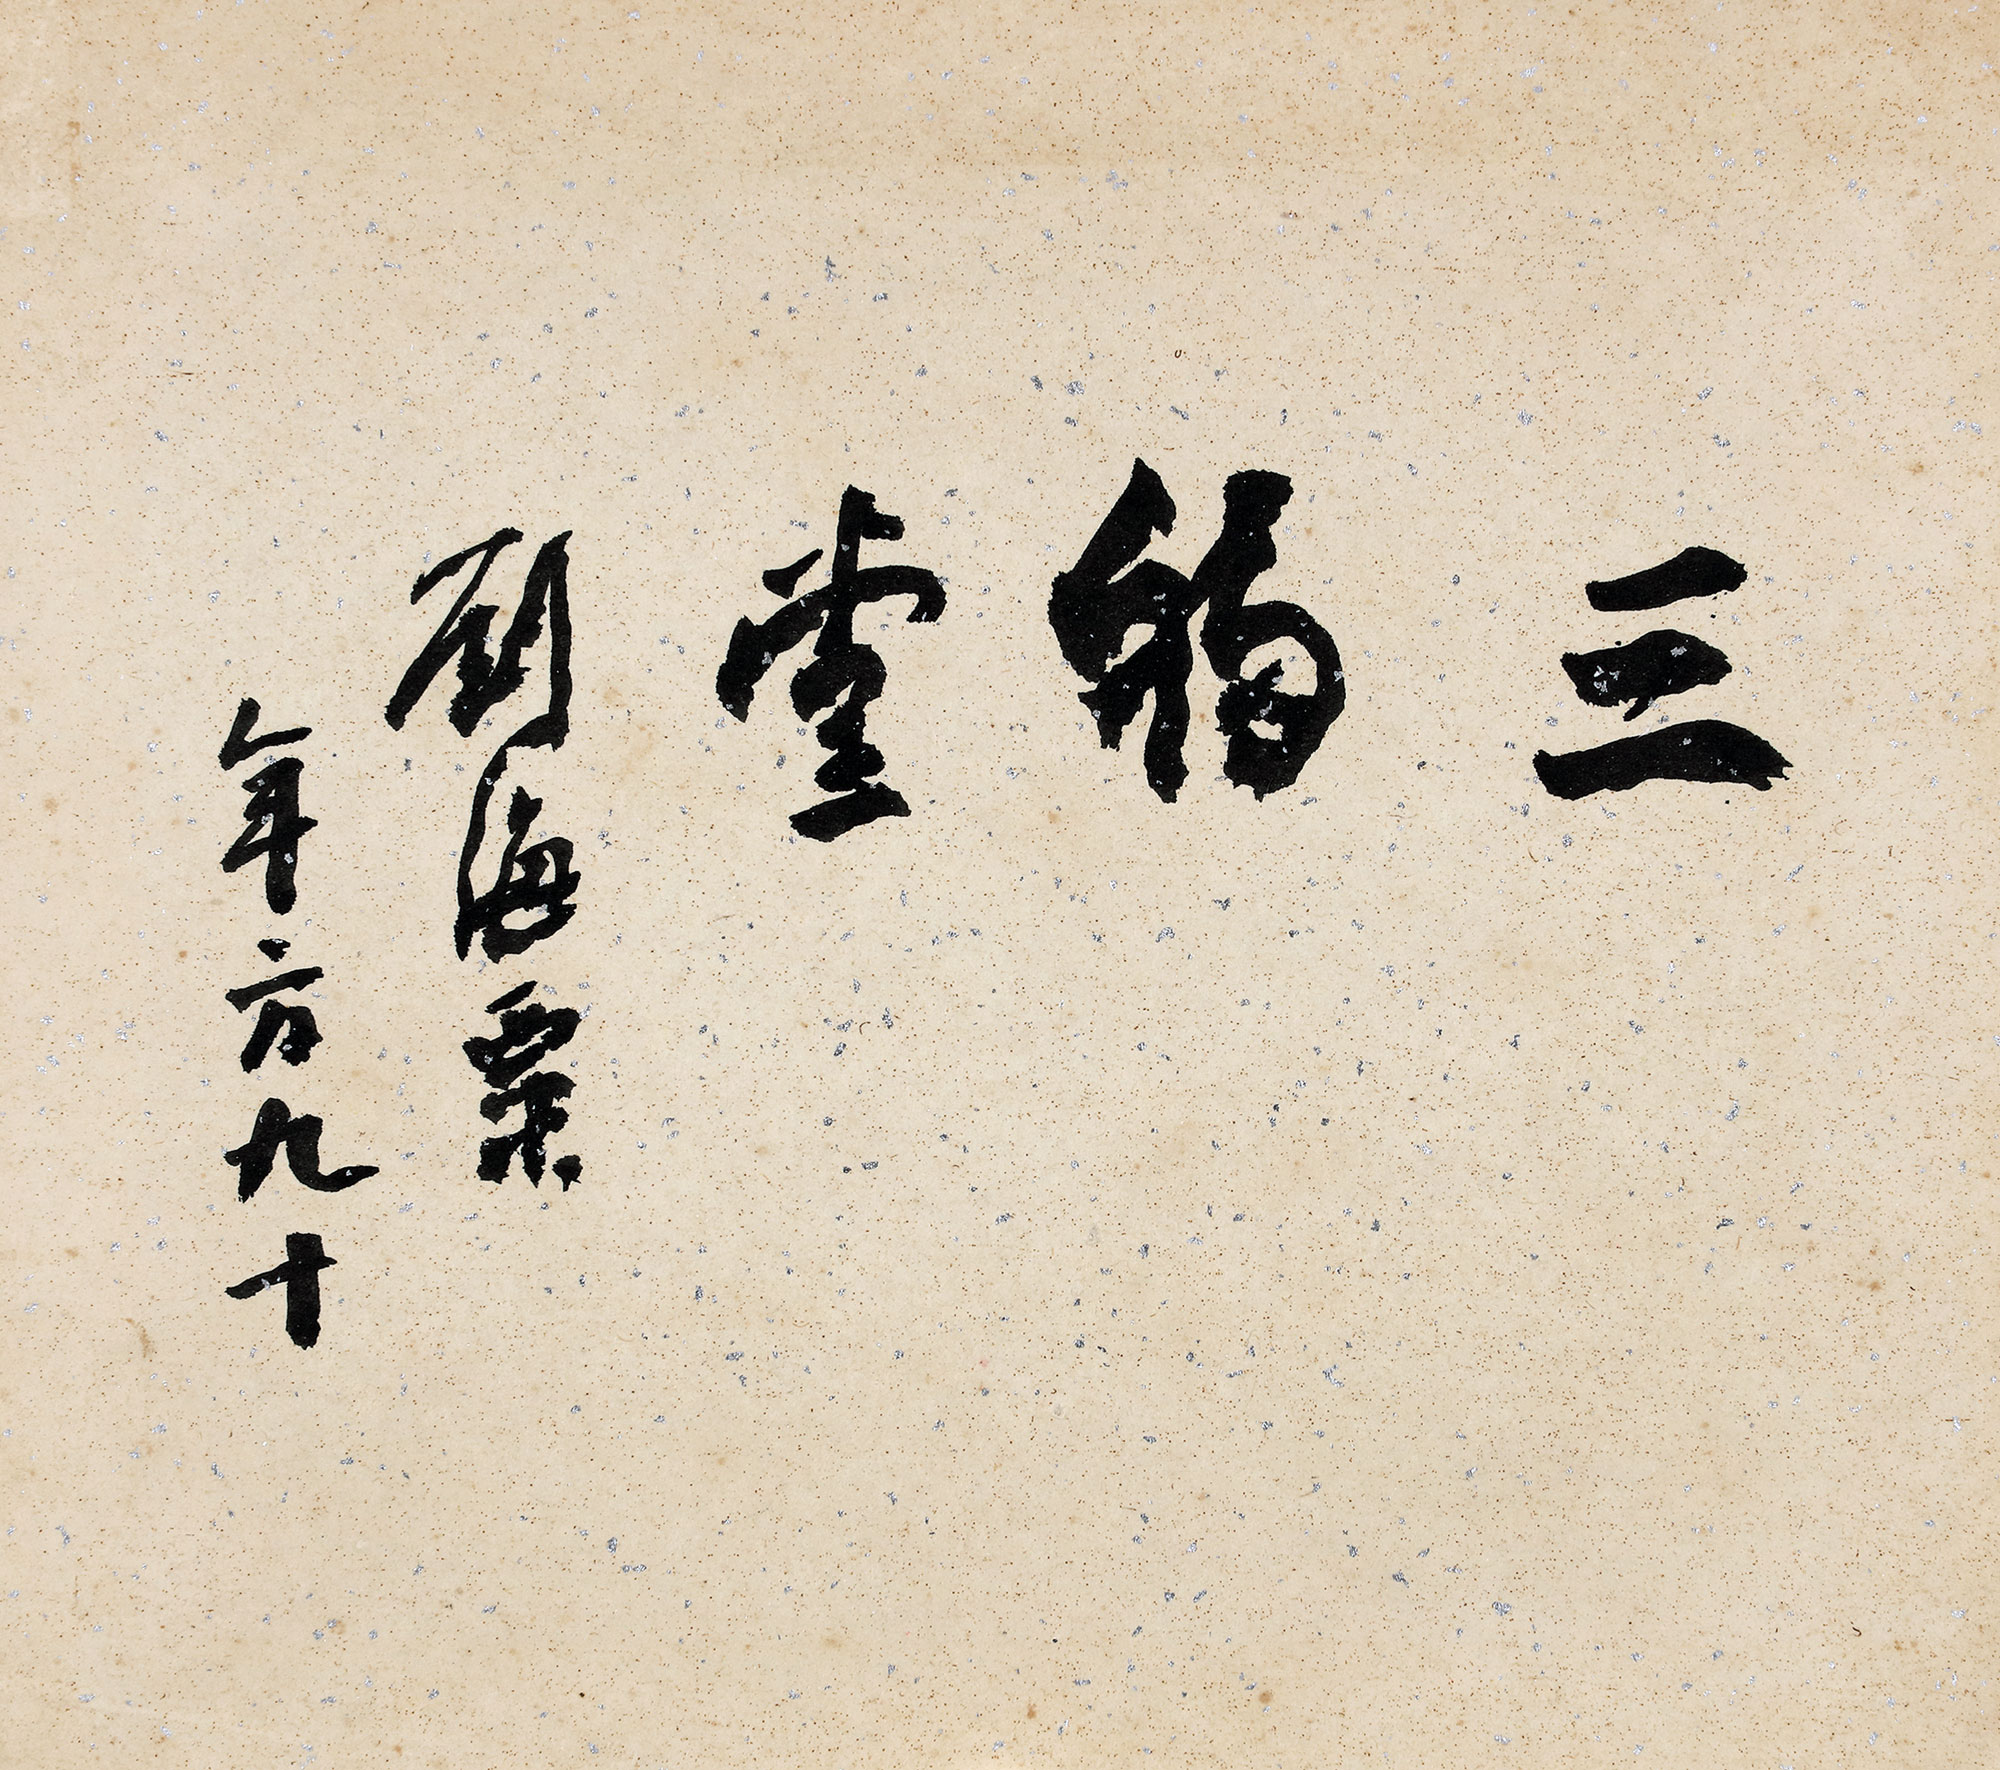 三福堂
劉海粟
年方九十